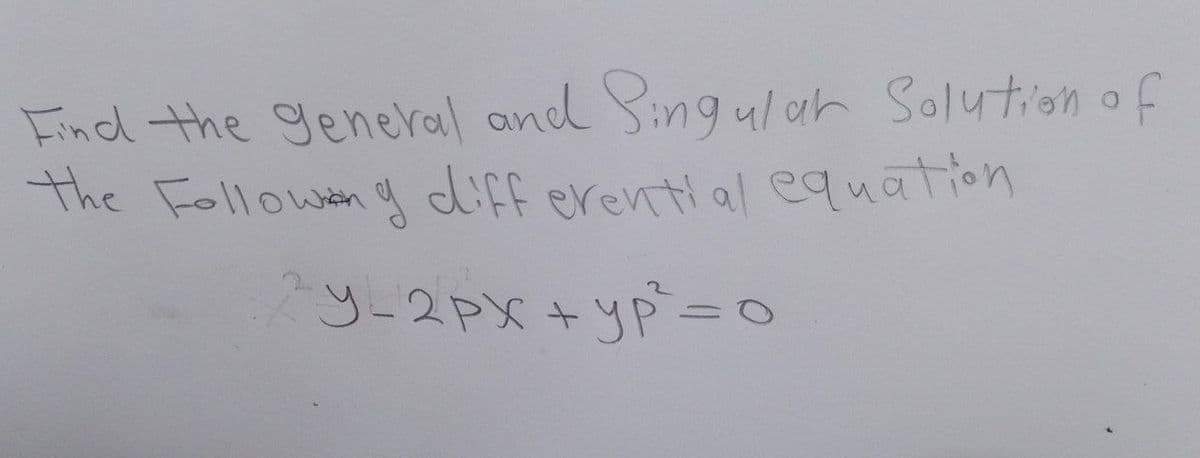 Find the general and Singular Solution of
the Following differential equation
y-2px + yp²=0